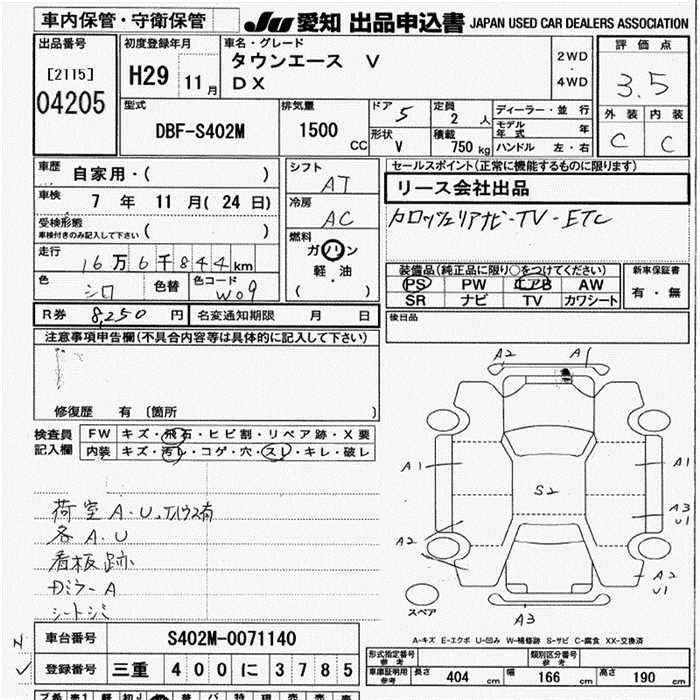 車内保管・守衛保管
JU 愛知 出品申込書 JAPAN USED CAR DEALERS ASSOCIATION
出品番号
[2115]
04205
初度登録年月
H29 11月
車名・グレード
タウンエース V
DX
2WD
・
4WD
評価点
3.5
外装 内装
C C
型式
DBF-S402M
排気量
1500
CC
ドア 5
形状 V
定員 2 人
積載 750 kg
ディーラー・並行
モデル年式 年
ハンドル 左・右
車歴
自家用・( )
車検
7 年 11 月 ( 24 日)
受検形態
車検付きのみ記入して下さい ( )
走行
16万6千844km
色
シロ
色替
色コード
W09
シフト
AT
冷房
AC
燃料
ガソリン
軽・油
( )
セールスポイント(正常に機能するものに限ります)
リース会社出品
カロッツェリアナビ-TV-ETC
装備品(純正品に限り○をつけてください)
PS PW エアB AW
SR ナビ TV カワシート
新車保証書
有・無
後日品
R券 8,250 円 名変通知期限 月 日
注意事項申告欄(不具合内容等は具体的に記入して下さい)
修復歴 有 〔箇所 〕
検査員
記入欄
FW キズ・飛石・ヒビ割・リペア跡・X要
内装 キズ・汚レ・コゲ・穴・スレ・キレ・破レ
荷室A.U
各A.U
看板跡
Dミラ-A
シートシミ
A2 A1
A1
A1
S2
A3
U1
A2
A2
U1
A3
スペア
A-キズ E-エクボ U-凹み W-補修跡 S-サビ C-腐食 XX-交換済
車台番号 S402M-0071140
登録番号 三重 400 に 3785
形式指定番号
参考
類別区分番号
参考
車庫証明用
参考
長さ 404 cm
幅 166 cm
高さ 190 cm